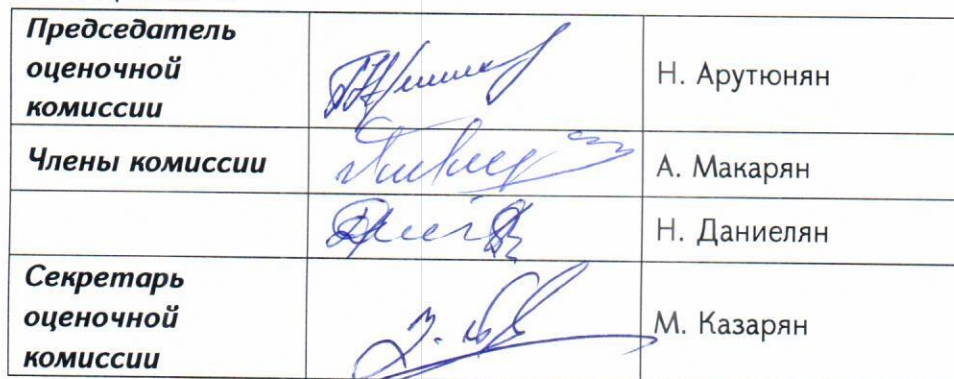 Председатель
оценочной
комиссии
Н. Арутюнян
Члены комиссии
А. Макарян
Н. Даниелян
Секретарь
оценочной
комиссии
М. Казарян